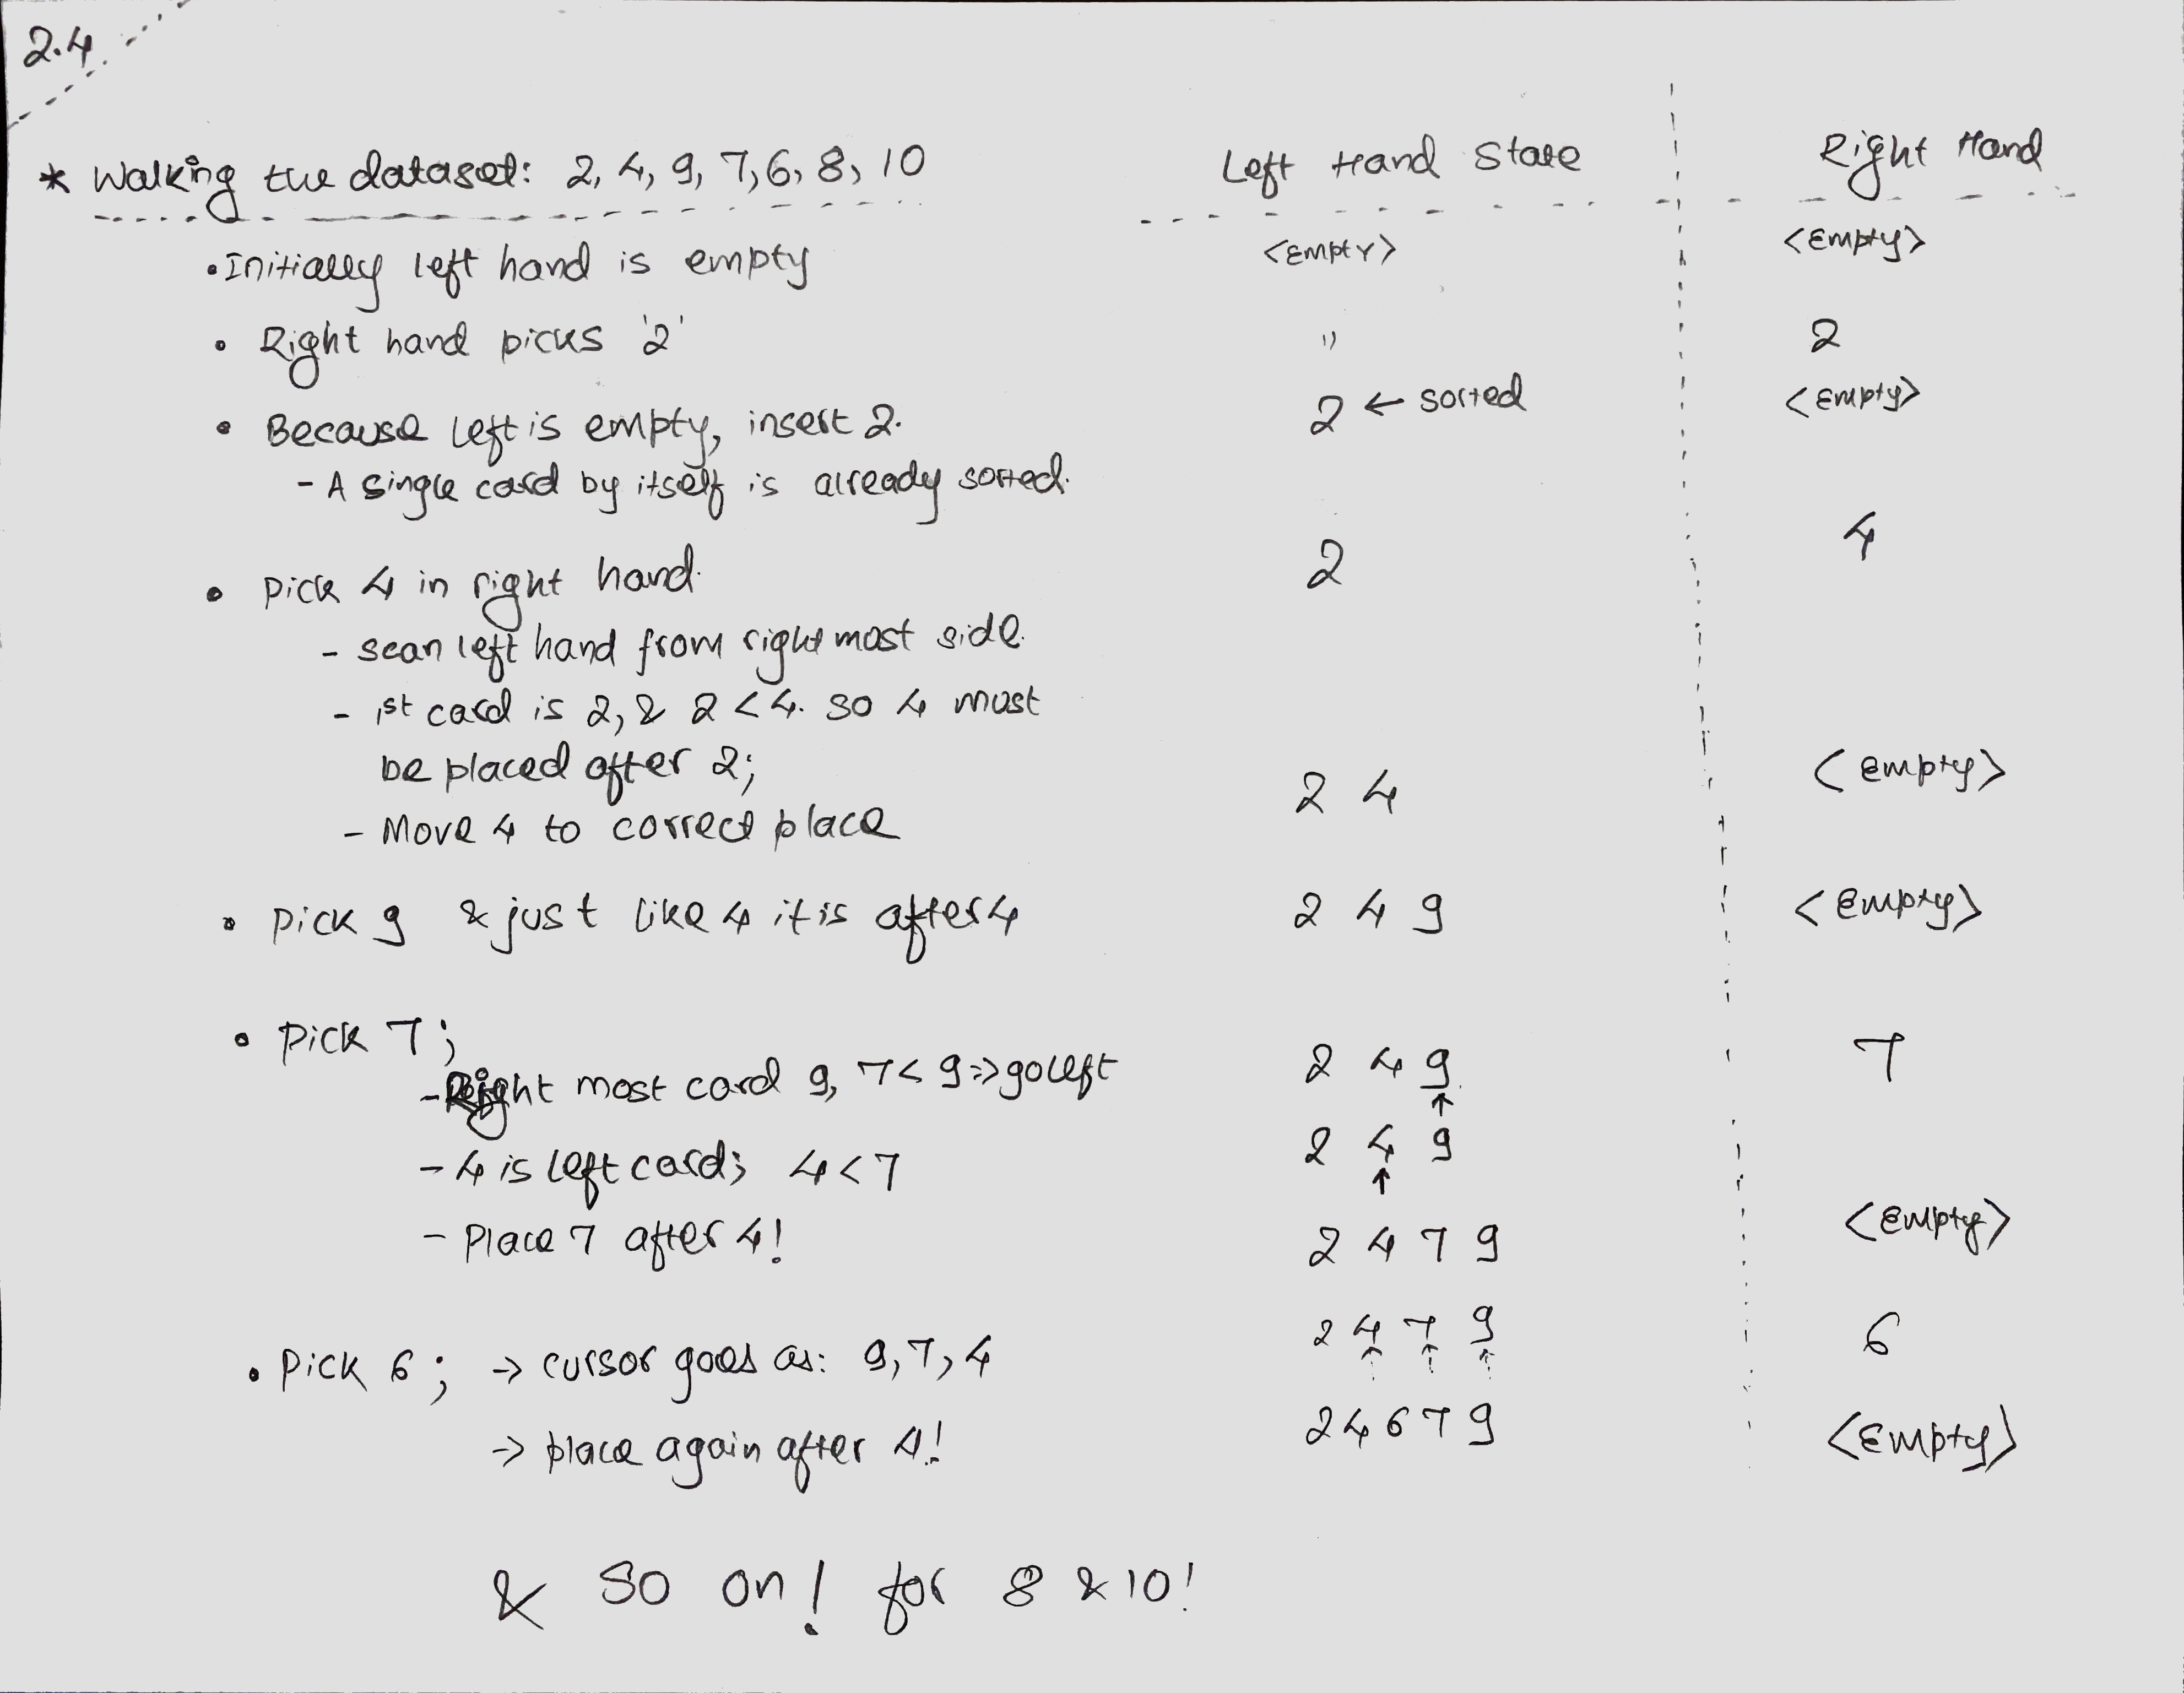 2.4
* Walking the dataset: 2, 4, 9, 7, 6, 8, 10 Left Hand State Right Hand
• Initially left hand is empty <Empty> <Empty>
• Right hand picks '2' " 2
• Because left is empty, insert 2. 2 ← sorted <Empty>
- A single card by itself is already sorted.
• Pick 4 in right hand. 2 4
- scan left hand from right most side.
- 1st card is 2, & 2 < 4. so 4 must
be placed after 2;
- Move 4 to correct place 2 4 <Empty>
• Pick 9 & just like 4 it is after 4 2 4 9 <Empty>
• Pick 7;
- Right most card 9, 7 < 9 => go left 2 4 9 7
↑
- 4 is left card; 4 < 7 2 4 9
↑
- Place 7 after 4! 2 4 7 9 <Empty>
• Pick 6; → cursor goes as: 9, 7, 4 2 4 7 9 6
↑ ↑ ↑
→ place again after 4! 2 4 6 7 9 <Empty>
& so on! for 8 & 10!